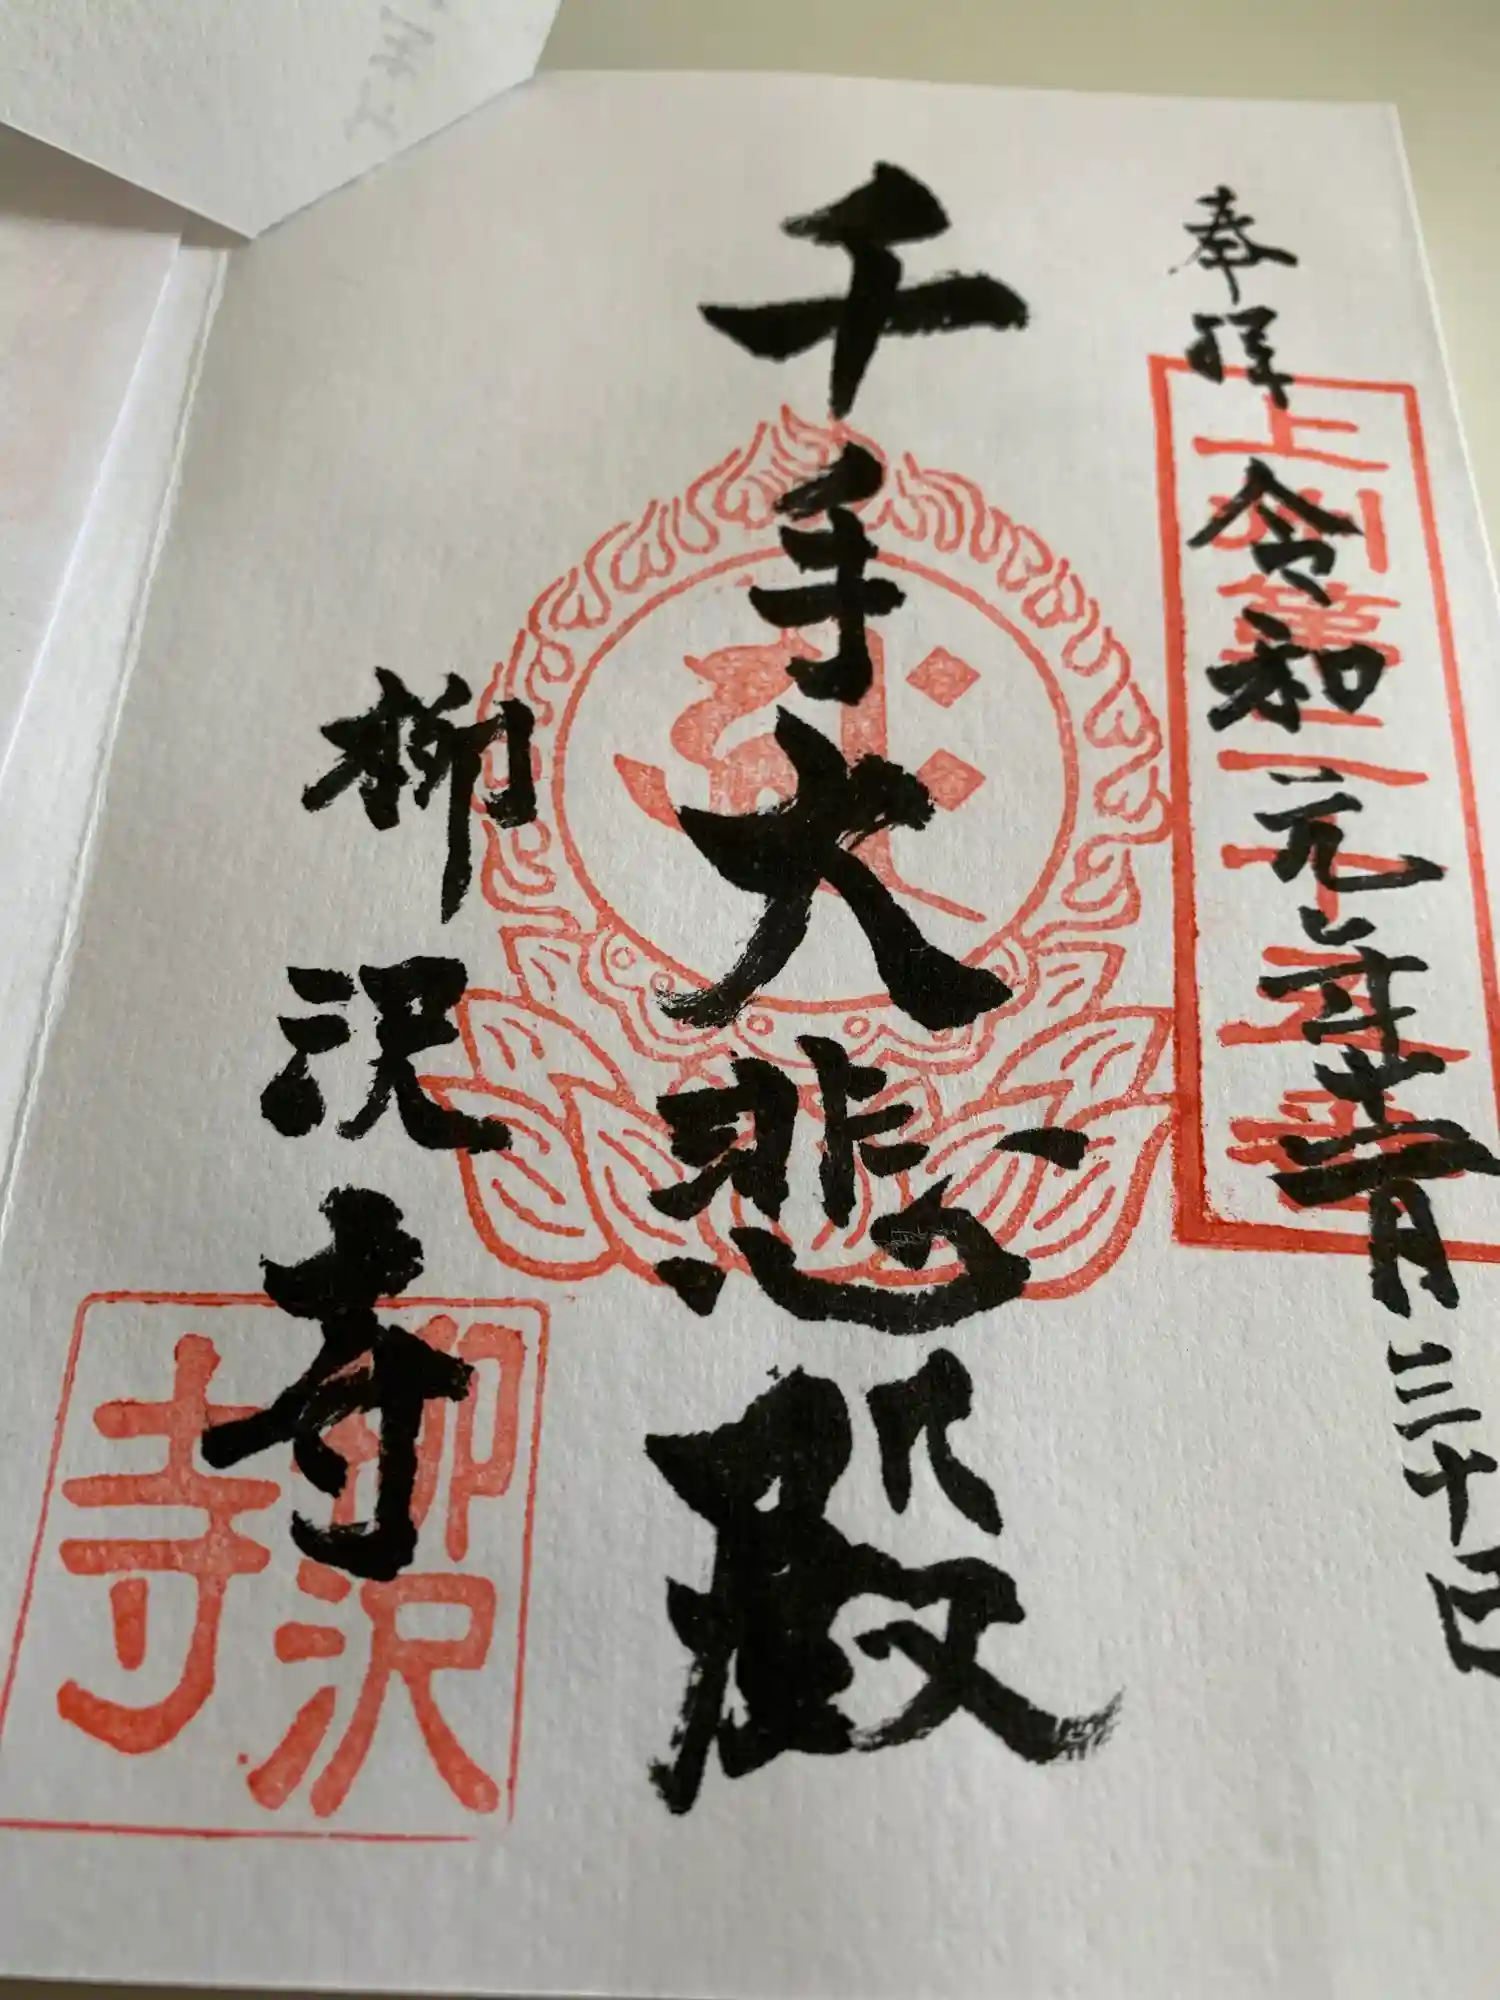 奉拝
令和元年十二月三十日
上州第二十五番
千手大悲殿
柳沢寺
柳沢寺